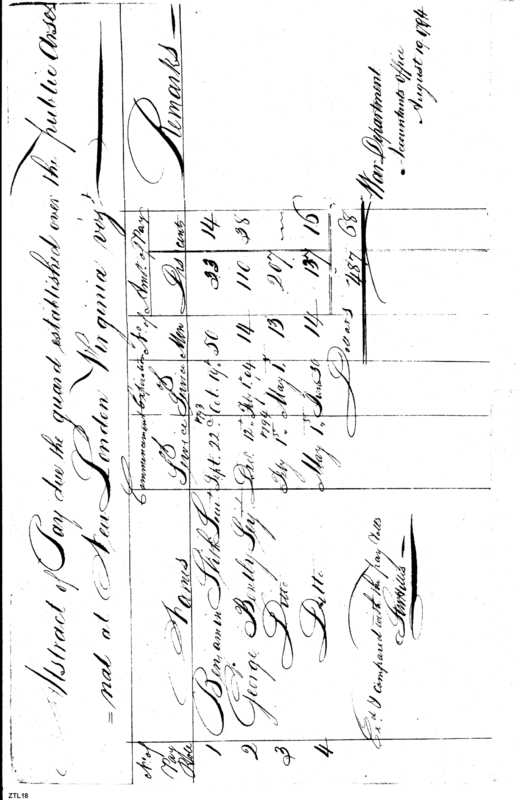 Abstract of Pay due the guard established over the public Arse
=nal at New London Virginia viz.t
No. of Pay Role | Names | Commencement of Service | Expiration of Service | No. of Men | Amt. of Pay Drs cents | Remarks
1 Benjamin Lieut. Sept. 22d 1793 Oct. 19th 50 33 14
2 George Serj. Dec. 12th 14 110 38
3 Ditto Feby 1st 1794 May 1st 13 207 —
4 Ditto May 1st June 30 14 137 16
Dollars 487 68
Exd. & compared with the pay rolls
War Department
Accountants Office
August 19 1794
ZTL18